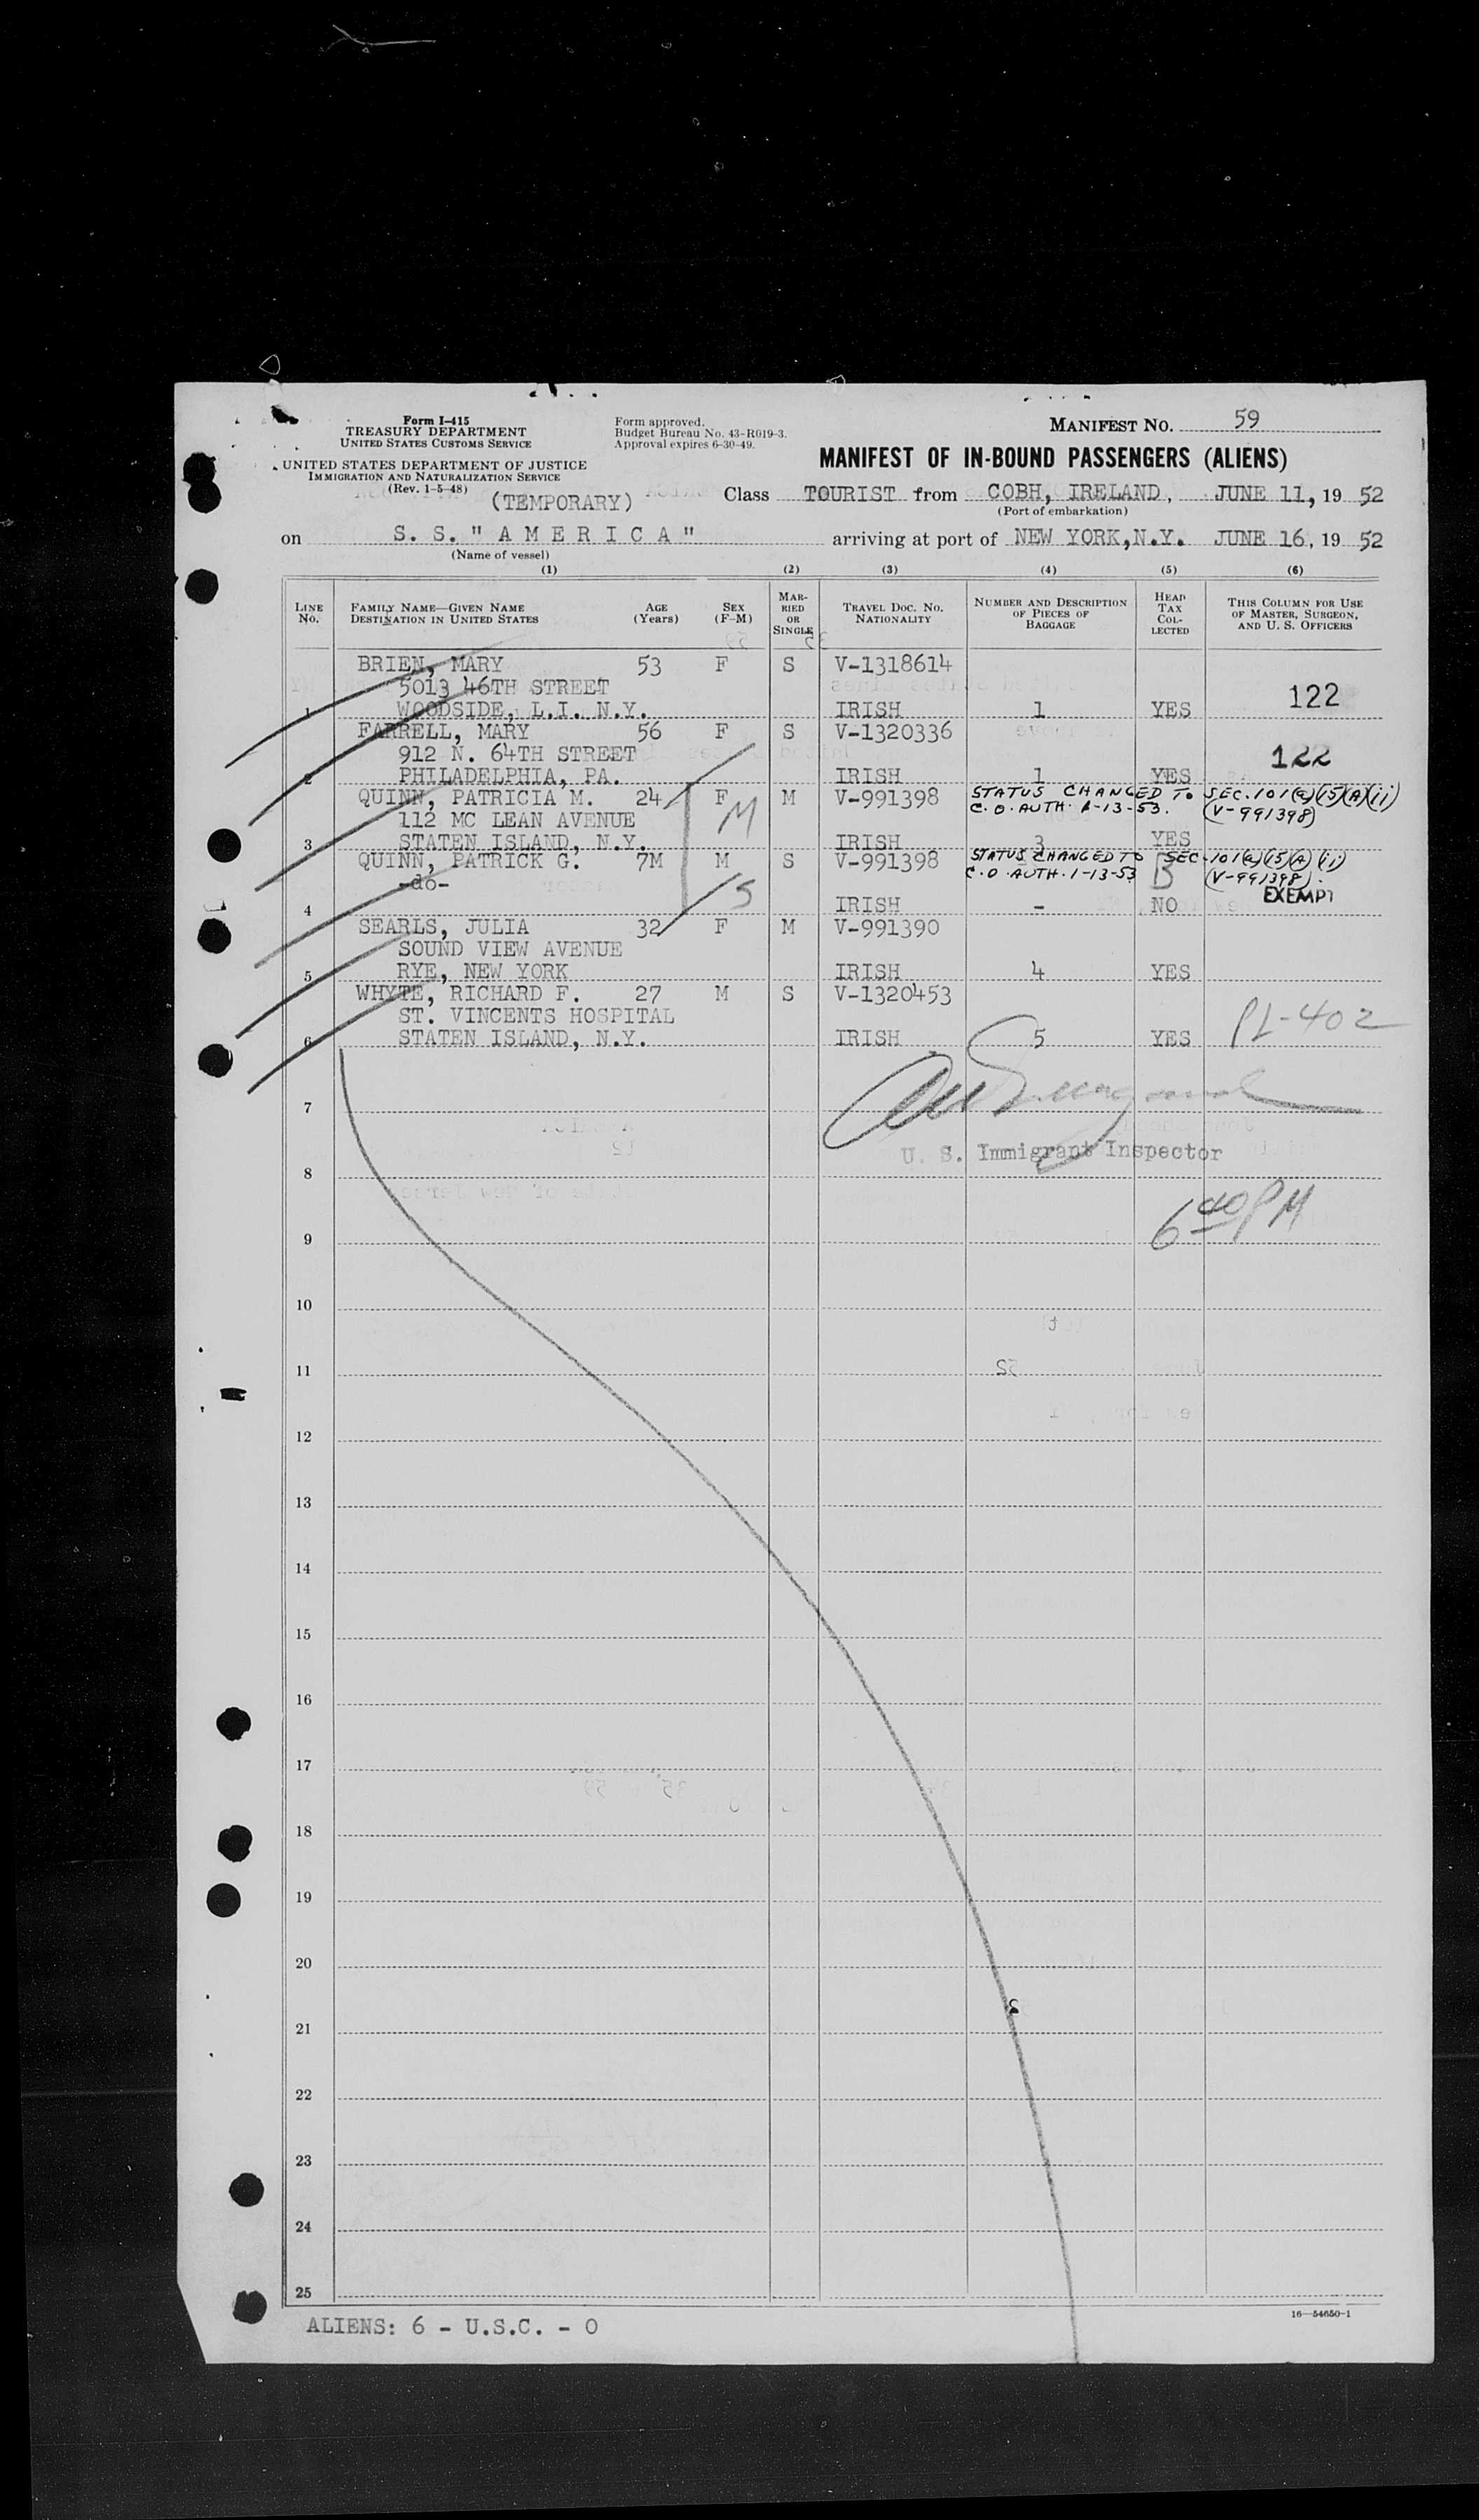 Form I-415
TREASURY DEPARTMENT
UNITED STATES CUSTOMS SERVICE
UNITED STATES DEPARTMENT OF JUSTICE
IMMIGRATION AND NATURALIZATION SERVICE
(Rev. 1-5-48)
(TEMPORARY)
Form approved.
Budget Bureau No. 43-R019-3.
Approval expires 6-30-49.
MANIFEST NO. 59
MANIFEST OF IN-BOUND PASSENGERS (ALIENS)
Class TOURIST from COBH, IRELAND, JUNE 11, 19 52
(Port of embarkation)
on S. S. " A M E R I C A " arriving at port of NEW YORK, N.Y. JUNE 16, 19 52
(Name of vessel)
(1) (2) (3) (4) (5) (6)
LINE No. FAMILY NAME—GIVEN NAME DESTINATION IN UNITED STATES AGE (Years) SEX (F-M) MARRIED OR SINGLE TRAVEL DOC. NO. NATIONALITY NUMBER AND DESCRIPTION OF PIECES OF BAGGAGE HEAD TAX COLLECTED THIS COLUMN FOR USE OF MASTER, SURGEON, AND U. S. OFFICERS
BRIEN, MARY 53 F S V-1318614
5013 46TH STREET 122
1 WOODSIDE, L.I. N.Y. IRISH 1 YES
FARRELL, MARY 56 F S V-1320336
912 N. 64TH STREET 122
2 PHILADELPHIA, PA. IRISH 1 YES
QUINN, PATRICIA M. 24 F M V-991398 STATUS CHANGED TO SEC. 101(a)(15)(A)(ii)
112 MC LEAN AVENUE M C.O. AUTH. 1-13-53. (V-991398)
3 STATEN ISLAND, N.Y. IRISH 3 YES
QUINN, PATRICK G. 7M M S V-991398 STATUS CHANGED TO SEC. 101(a)(15)(A)(ii)
-do- S C.O. AUTH. 1-13-53 B (V-991398).
4 IRISH - NO EXEMPT
SEARLS, JULIA 32 F M V-991390
SOUND VIEW AVENUE
5 RYE, NEW YORK IRISH 4 YES
WHYTE, RICHARD F. 27 M S V-1320453
ST. VINCENTS HOSPITAL PL-402
6 STATEN ISLAND, N.Y. IRISH 5 YES
7
U. S. Immigrant Inspector
8
6 40 PM
9
10
11
12
13
14
15
16
17
18
19
20
21
22
23
24
25
ALIENS: 6 - U.S.C. - 0
16—54650-1